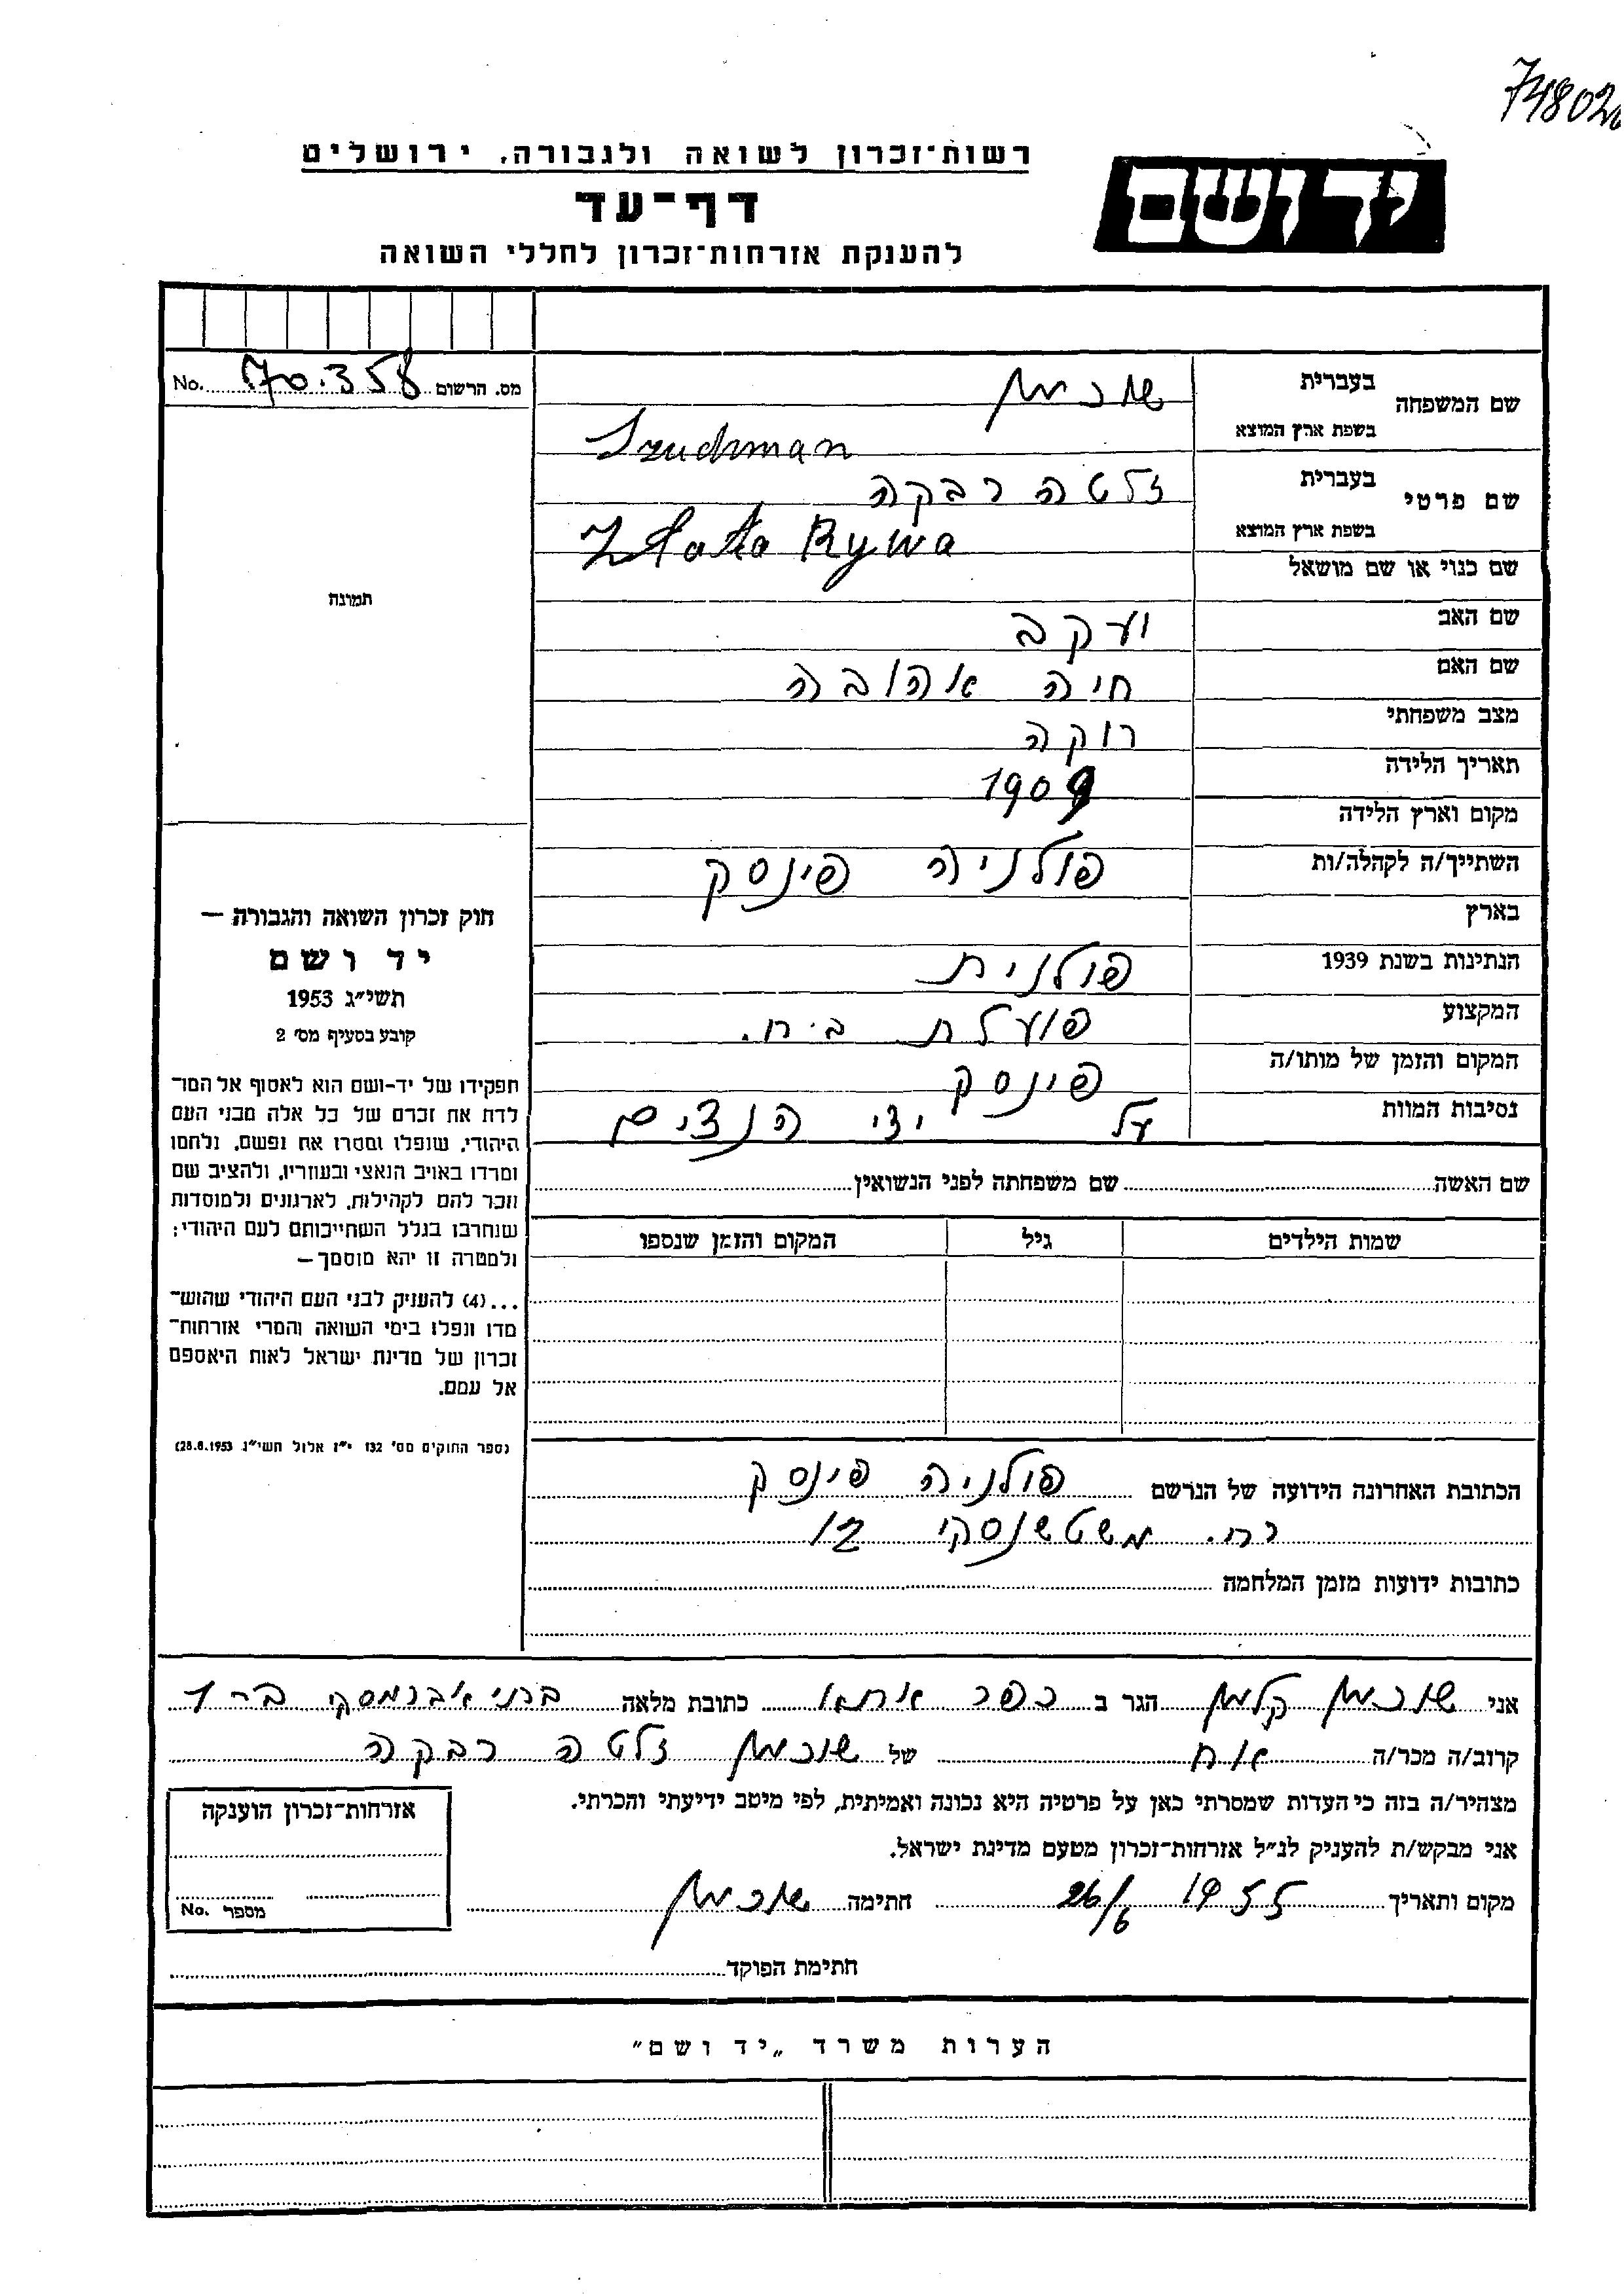 748026
רשות־זכרון לשואה ולגבורה, ירושלים
יד ושם
דף־עד
להענקת אזרחות־זכרון לחללי השואה
מס. הרשום 70.358 No.
שם המשפחה
בעברית שוכמן
בשפת ארץ המוצא Szuchman
שם פרטי
בעברית זלטה רבקה
בשפת ארץ המוצא Złata Rywa
שם כנוי או שם מושאל
שם האב יעקב
שם האם חיה אהובה
מצב משפחתי רוקה
תאריך הלידה 1909
מקום וארץ הלידה
השתייך/ה לקהלה/ות פולניה פינסק
בארץ
הנתינות בשנת 1939 פולנית
המקצוע פועלת ב.ח.
המקום והזמן של מותו/ה פינסק
נסיבות המוות על ידי הנצים
תמונה
חוק זכרון השואה והגבורה —
יד ושם
תשי״ג 1953
קובע בסעיף מס׳ 2
תפקידו של יד-ושם הוא לאסוף אל המו־
לדת את זכרם של כל אלה מבני העם
היהודי, שנפלו ומסרו את נפשם, נלחמו
ומרדו באויב הנאצי ובעוזריו, ולהציב שם
וזכר להם לקהילות, לארגונים ולמוסדות
שנחרבו בגלל השתייכותם לעם היהודי;
ולמטרה זו יהא מוסמך—
...(4) להעניק לבני העם היהודי שהוש־
מדו ונפלו בימי השואה והמרי אזרחות־
זכרון של מדינת ישראל לאות היאספם
אל עמם.
(ספר החוקים מס׳ 132 י״ז אלול תשי״ג 28.8.1953)
שם האשה שם משפחתה לפני הנשואין
שמות הילדים גיל המקום והזמן שנספו
הכתובת האחרונה הידועה של הנרשם פולניה פינסק
רח. משטשנסקי 12
כתובות ידועות מזמן המלחמה
אני שוכמן קלמן הגר ב כפר אתא כתובת מלאה
קרוב/ה מכר/ה אח של שוכמן זלטה רבקה
מצהיר/ה בזה כי העדות שמסרתי כאן על פרטיה היא נכונה ואמיתית, לפי מיטב ידיעתי והכרתי.
אני מבקש/ת להעניק לנ״ל אזרחות־זכרון מטעם מדינת ישראל.
מקום ותאריך 1955 26/6 חתימה שוכמן
חתימת הפוקד
אזרחות־זכרון הוענקה
מספר No.
הערות משרד „יד ושם״